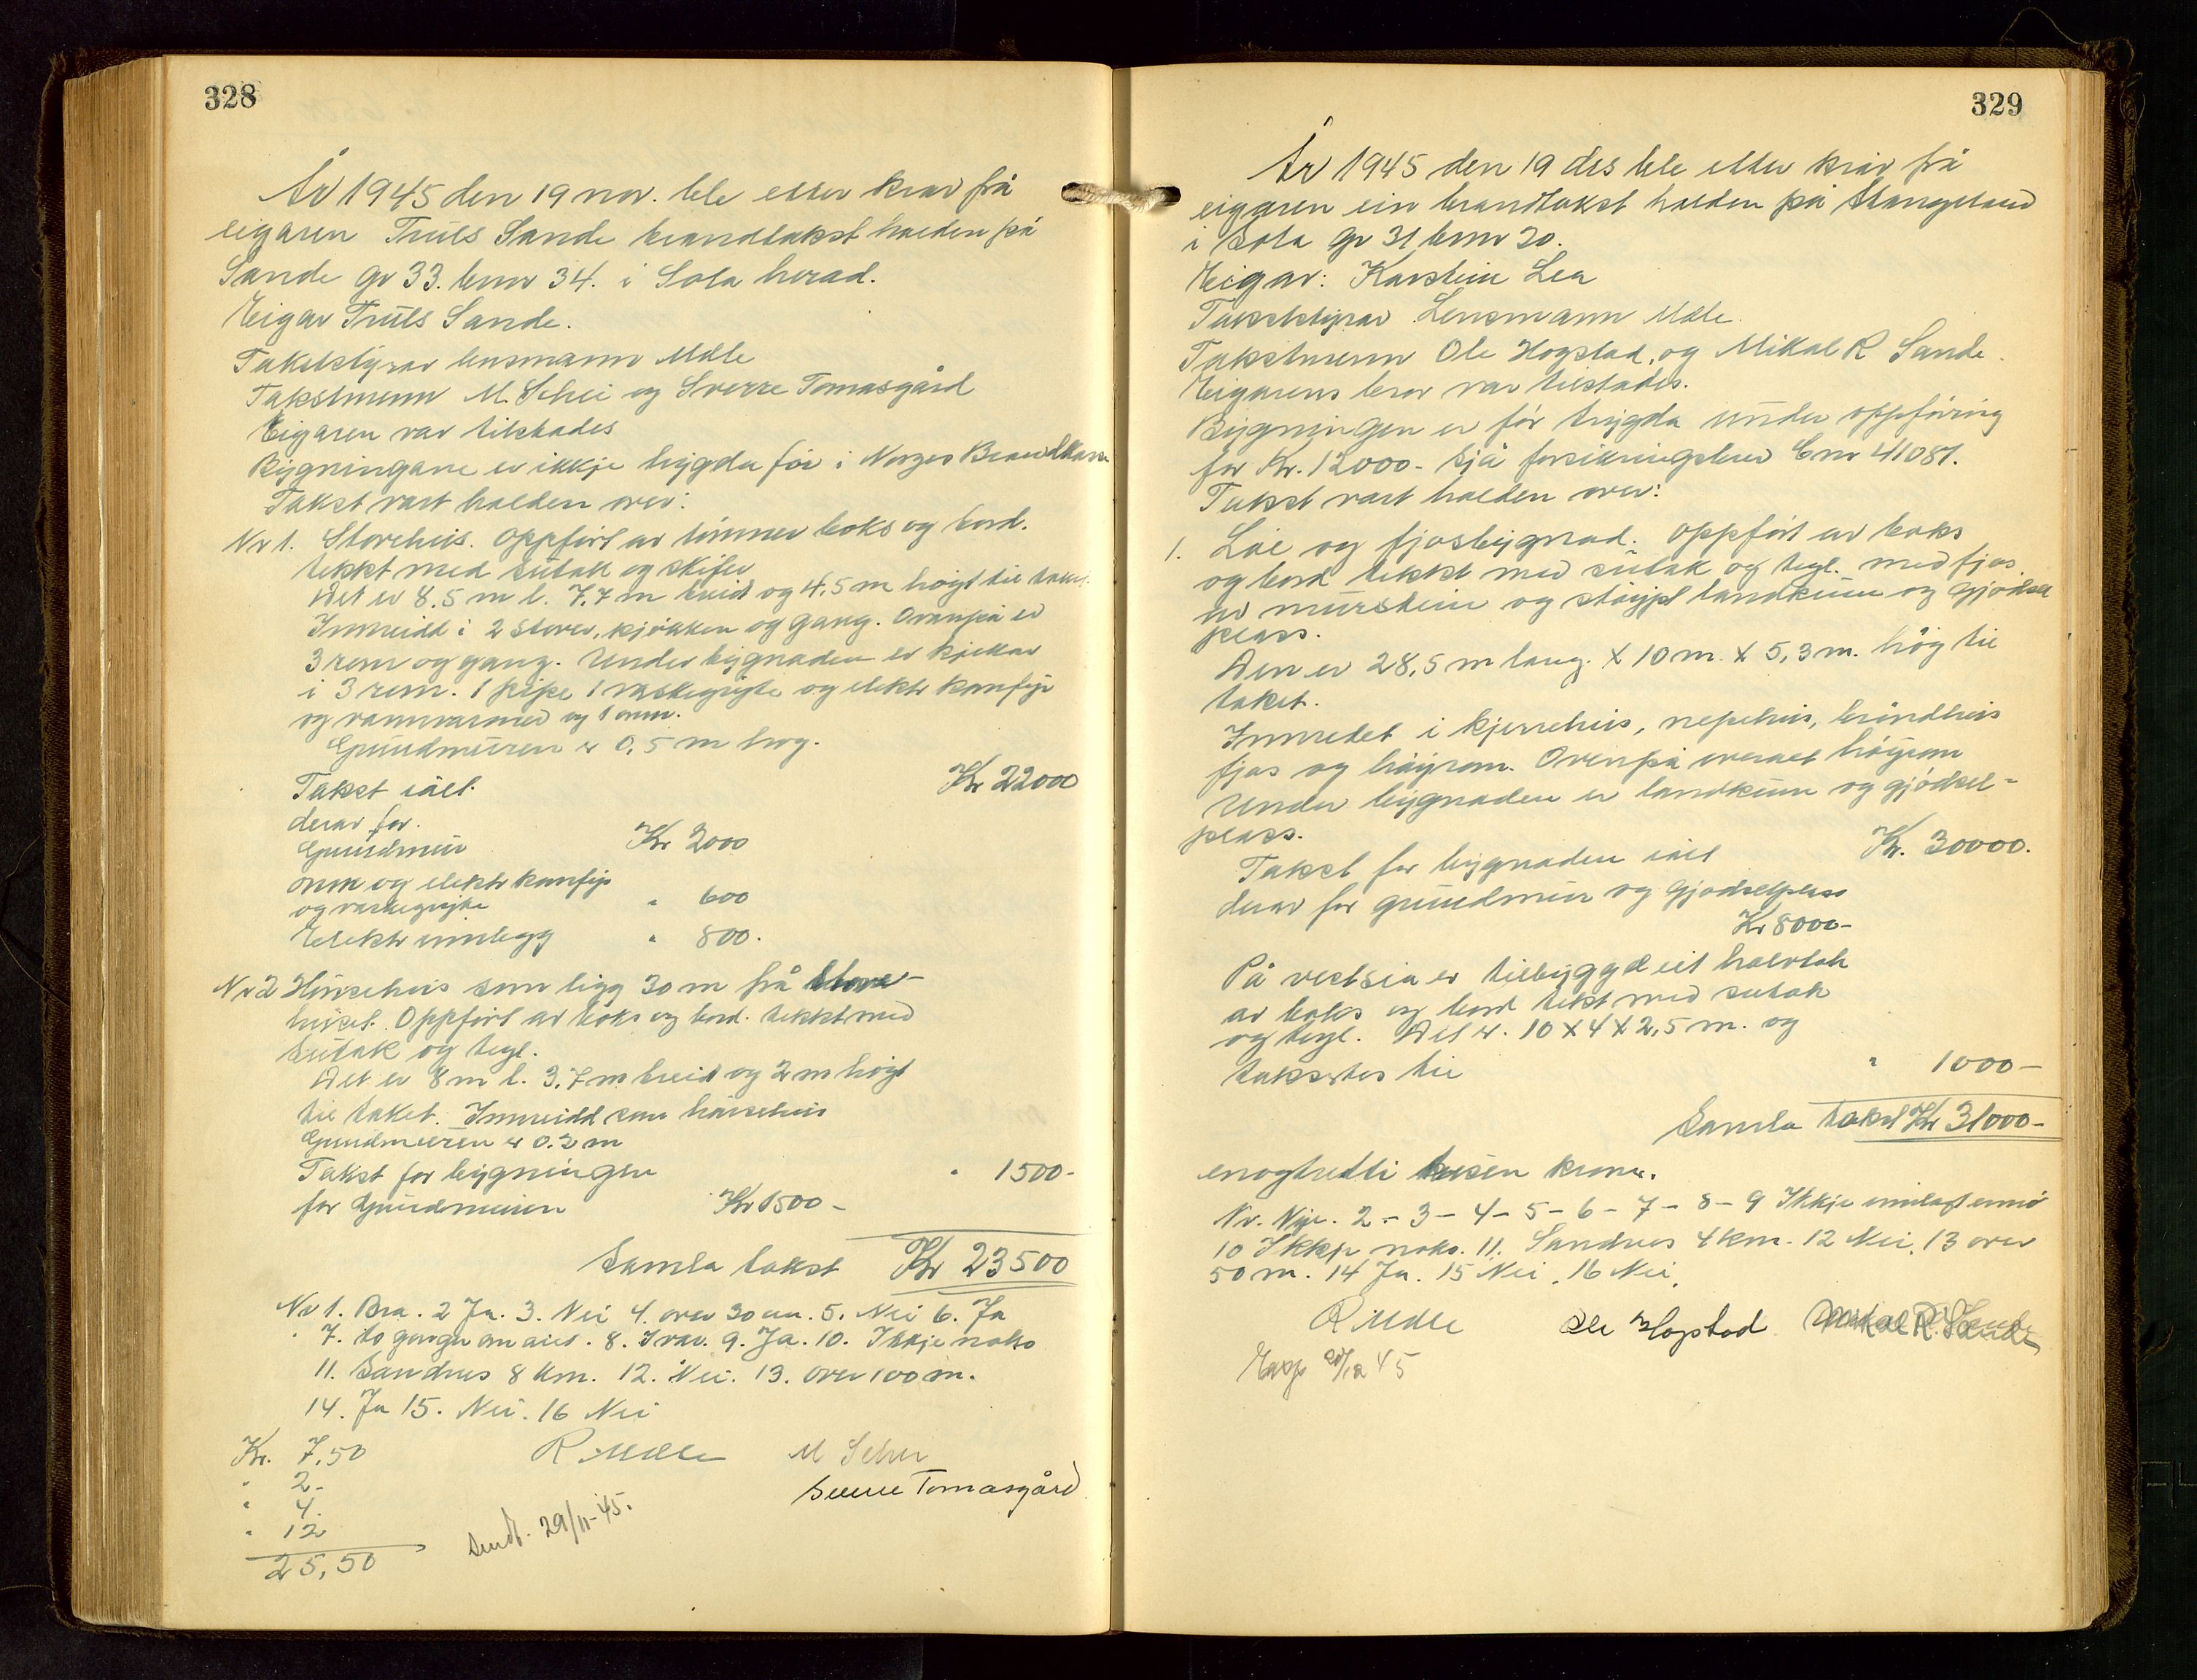 328
År 1945 den 19 nov. ble etter krav frå
eigaren Truls Sande brandtakst halden på
Sande gr 33. bnr 34. i Sola herad.
Eigar Truls Sande.
Takststyrar lensmann Malle
Takstmenn M. Schei og Sverre Tomasgård
Eigaren var tilstades
Bygningane er ikkje trygda før i Norges Brandkasse
Takst vart halden over:
Nr 1. Storehus. Oppført av tømmer boks og bord.
tekkt med sutak og skifer
Det er 8.5 m l. 7,7 m breid og 4,5 m høgt til taket.
Innreidd i 2 stover, kjøkken og gang. Ovanpå er
3 rom og gang. Under bygnaden er kjellar
i 3 rom. 1 pipe 1 vaskegryte og elektr komfyr
og vannvarmer og 1 omn.
Grundmuren er 0,5 m høg.
Takst ialt. Kr 22000
derav for.
Grundmur Kr 2000
omn og elektr komfyr
og vaskegryte " 600
Elektr innlegg " 800.
Nr 2 Hønsehus som ligg 30 m frå Stove-
huset. Oppført av boks og bord. tekkt med
Sutak og tegl.
Det er 8 m l. 3,7 m breid og 2 m høgt
til taket. Innreidd som hønsehus
Grundmuren er 0.3 m
Takst for bygningen " 1500-
for Grundmuren Kr 1500-
Samla takst Kr 23500
Nr 1. Bra. 2 Ja. 3. Nei 4. over 30 m. 5. Nei 6. Ja
" 7. to gonger om året. 8. 9. Ja. 10. Ikkje noko
11. Sandnes 8 km. 12. Nei. 13. over 100 m.
14. Ja 15. Nei. 16 Nei
Kr. 7,50 R Malle M Schei
" 2- Sverre Tomasgård
" 4.
" 12 Sendt. 29/11-45.
25,50
329
År 1945 den 19 des ble etter krav frå
eigaren ein brandtakst halden på Stangeland
i Sola gr 31 bnr 20.
Eigar: Karstein Lea
Takststyrar Lensmann Malle.
Takstmenn Ole Hogstad, og Mikal R Sande.
Eigarens bror var tilstades.
Bygningen er før trygda under oppføring
for Kr. 12000- Sjå forsikringsbrev C nr 41081.
Takst vart halden over:
1. Løe og fjosbygnad. Oppført av boks
og bord tekkt med sutak og tegl. med fjos
av murstein og støypt landkum og gjødsel
plass.
Den er 28,5 m lang. X 10 m. X 5,3 m. høg til
taket.
Innredet i kjerrehus, nepehus,
fjos og høyrom. Ovenpå overalt høyrom
Under bygnaden er landkum og gjødsel=
plass.
Takst for bygnaden ialt Kr. 30000.
derav for grundmur og Gjødselplass
Kr 8000-
På vestsia er tilbyggd eit halvtak
av boks og bord tekt med sutak
og tegl. Det er. 10 X 4 X 2,5 m. og
takseres til " 1000-
Samla takst Kr 31000-
enogtretti tusen kroner.
Nr. Nye. 2 - 3 - 4 - 5 - 6 - 7 - 8 - 9 Ikkje innlagt ennå
10 Ikkje noko. 11. Sandnes 4 km. 12 Nei. 13 over
50 m. 14 Ja. 15 Nei. 16 Nei.
R Malle Ole Hogstad Mikal R. Sande
Eksp 20/12 45